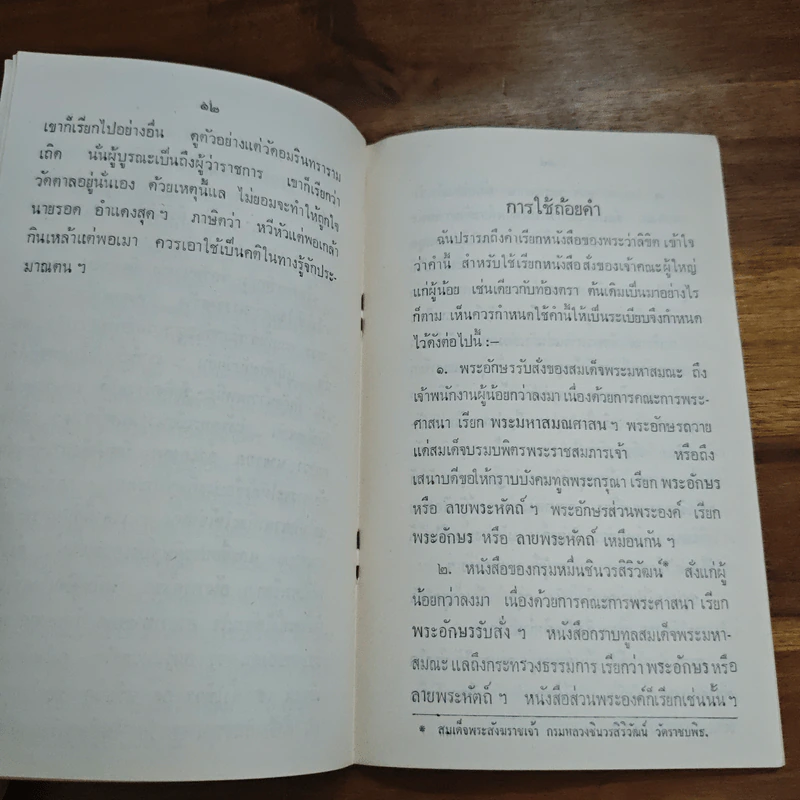 ๑๒
เขาก็เรียกไปอย่างอื่น ดูตัวอย่างแต่วัดอมรินทราราม
เถิด นั่นผู้บูรณะเป็นถึงผู้ว่าราชการ เขาก็เรียกว่า
วัดตาลอยู่นั่นเอง ด้วยเหตุนี้แล ไม่ยอมจะทำให้ถูกใจ
นายรอด อำแดงสุด ฯ ภาษิตว่า หวีหัวแต่พอเกล้า
กินเหล้าแต่พอเมา ควรเอาใช้เป็นคติในทางรู้จักประ-
มาณตน ฯ
การใช้ถ้อยคำ
ฉันปรารภถึงคำเรียกหนังสือของพระว่าลิขิต เข้าใจ
ว่าคำนี้ สำหรับใช้เรียกหนังสือสั่งของเจ้าคณะผู้ใหญ่
แก่ผู้น้อย เช่นเดียวกับท้องตรา ต้นเดิมเป็นมาอย่างไร
ก็ตาม เห็นควรกำหนดใช้คำนี้ให้เป็นระเบียบจึงกำหนด
ไว้ดังต่อไปนี้ :–
๑. พระอักษรรับสั่งของสมเด็จพระมหาสมณะ ถึง
เจ้าพนักงานผู้น้อยกว่าลงมา เนื่องด้วยการคณะการพระ-
ศาสนา เรียก พระมหาสมณศาสน ฯ พระอักษรถวาย
แด่สมเด็จบรมบพิตรพระราชสมภารเจ้า หรือถึง
เสนาบดีขอให้กราบบังคมทูลพระกรุณา เรียก พระอักษร
หรือ ลายพระหัตถ์ ฯ พระอักษรส่วนพระองค์ เรียก
พระอักษร หรือ ลายพระหัตถ์ เหมือนกัน ฯ
๒. หนังสือของกรมหมื่นชินวรสิริวัฒน์* สั่งแก่ผู้
น้อยกว่าลงมา เนื่องด้วยการคณะการพระศาสนา เรียก
พระอักษรรับสั่ง ฯ หนังสือกราบทูลสมเด็จพระมหา-
สมณะ แลถึงกระทรวงธรรมการ เรียกว่า พระอักษร หรือ
ลายพระหัตถ์ ฯ หนังสือส่วนพระองค์ก็เรียกเช่นนั้น ฯ
* สมเด็จพระสังฆราชเจ้า กรมหลวงชินวรสิริวัฒน์ วัดราชบพิธ.